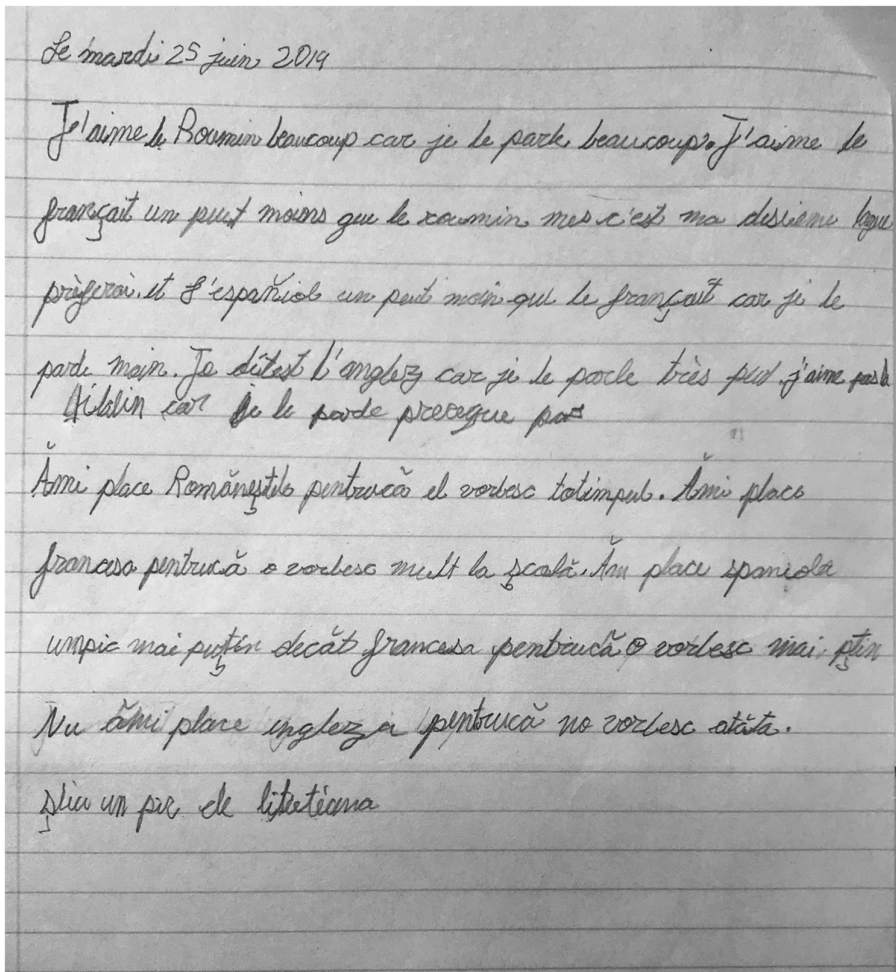 Le mardi 25 juin 2019
J'aime le Roumin beaucoup car je le parle beaucoup. J'aime le
françait un peut moins que le roumin mes c'est ma desieme lague
prèferai. et l'españiol un peut moin que le françait car je le
parle moin. Je dètest l'anglez car je le parle très peu j'aime pas le
car je le parle presque pas
Ămi place Romăneștele pentrucă el vorbesc totimpul. Ămi place
francesa pentrucă o vorbesc mult la școală. Ămi place spaniola
umpic mai puțin decăt francesa pentrucă o vorbesc mai pțin
Nu ămi place engleza pentrucă no vorbesc atăta.
știu un pic de